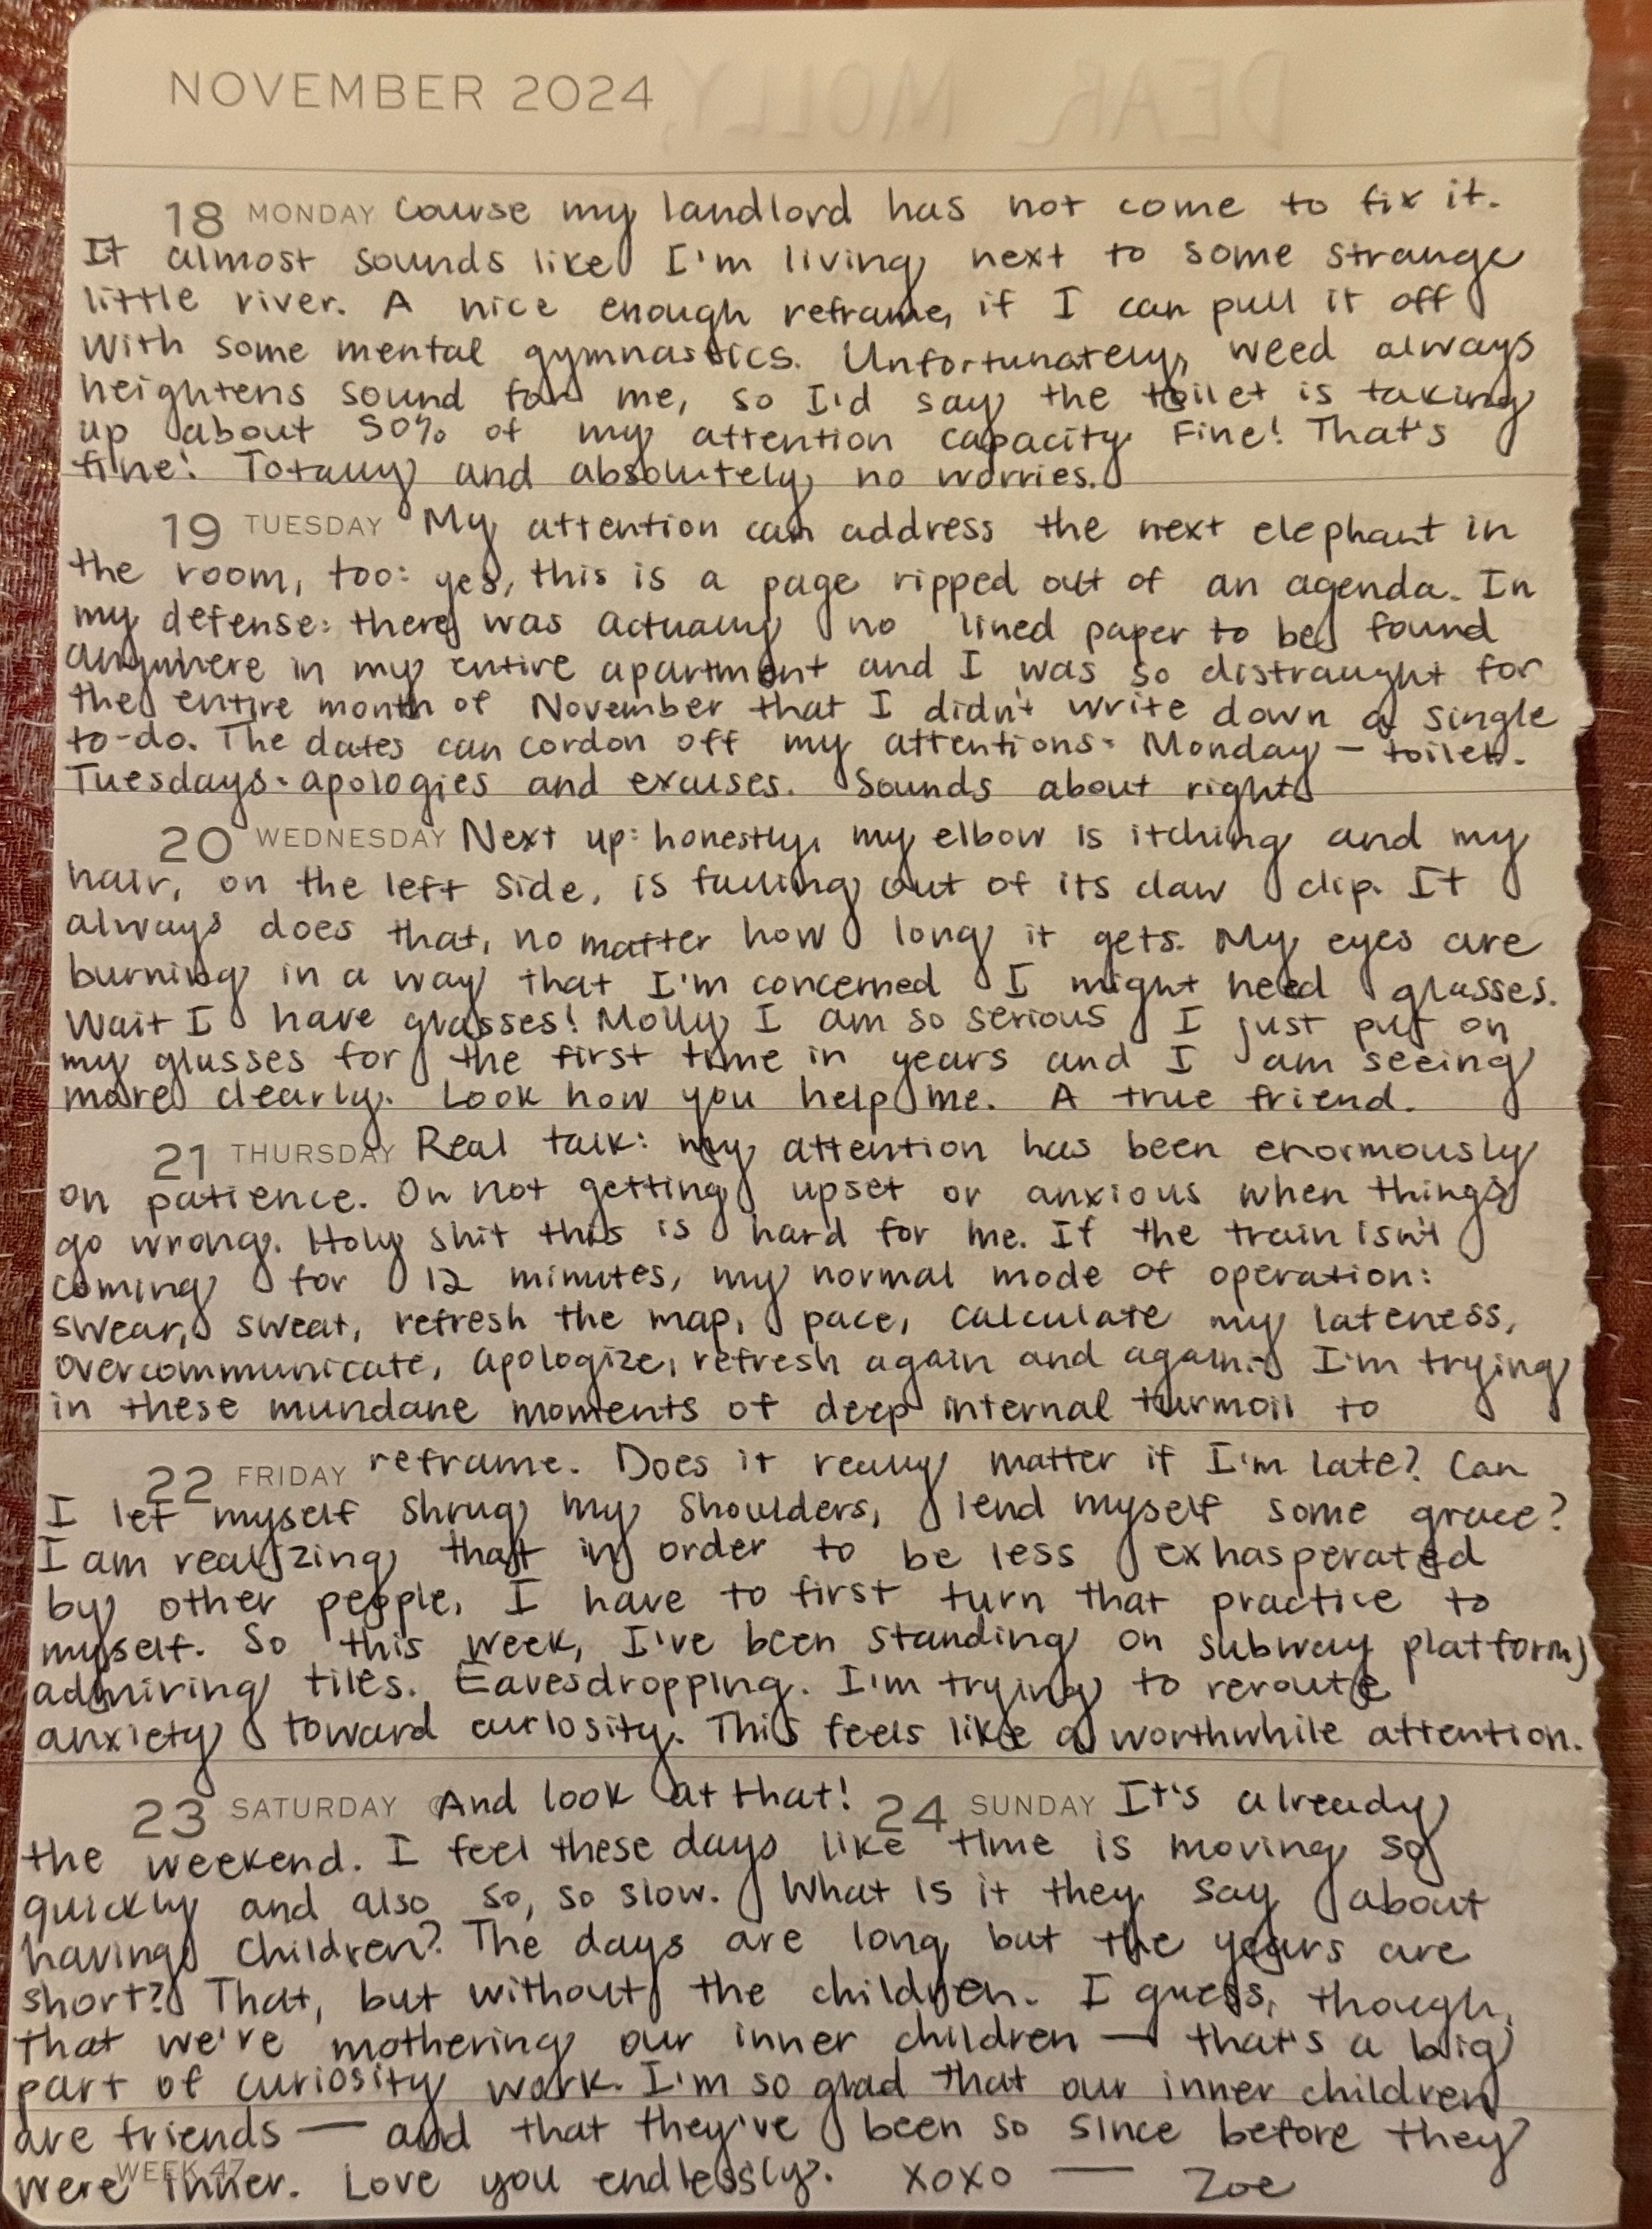 NOVEMBER 2024
DEAR MOLLY,
18 MONDAY course my landlord has not come to fix it.
It almost sounds like I'm living next to some strange
little river. A nice enough reframe, if I can pull it off
with some mental gymnastics. Unfortunately, weed always
heightens sound for me, so I'd say the toilet is taking
up about 50% of my attention capacity. Fine! That's
fine! Totally and absolutely no worries.
19 TUESDAY My attention can address the next elephant in
the room, too: yes, this is a page ripped out of an agenda. In
my defense: there was actually no lined paper to be found
anywhere in my entire apartment and I was so distraught for
the entire month of November that I didn't write down a single
to-do. The dates can cordon off my attentions: Monday — toilet.
Tuesdays: apologies and excuses. Sounds about right.
20 WEDNESDAY Next up: honestly, my elbow is itching and my
hair, on the left side, is falling out of its claw clip. It
always does that, no matter how long it gets. My eyes are
burning in a way that I'm concerned I might need glasses.
Wait I have glasses! Molly I am so serious I just put on
my glasses for the first time in years and I am seeing
more clearly. Look how you help me. A true friend.
21 THURSDAY Real talk: my attention has been enormously
on patience. On not getting upset or anxious when things
go wrong. Holy shit this is hard for me. If the train isn't
coming for 12 minutes, my normal mode of operation:
swear, sweat, refresh the map, pace, calculate my lateness,
overcommunicate, apologize, refresh again and again. I'm trying
in these mundane moments of deep internal turmoil to
22 FRIDAY reframe. Does it really matter if I'm late? Can
I let myself shrug my shoulders, lend myself some grace?
I am realizing that in order to be less exhasperated
by other people, I have to first turn that practice to
myself. So this week, I've been standing on subway platforms
admiring tiles. Eavesdropping. I'm trying to reroute
anxiety toward curiosity. This feels like a worthwhile attention.
23 SATURDAY And look at that! 24 SUNDAY It's already
the weekend. I feel these days like time is moving so
quickly and also so, so slow. What is it they say about
having children? The days are long but the years are
short? That, but without the children. I guess, though,
that we're mothering our inner children — that's a big
part of curiosity work. I'm so glad that our inner children
are friends — and that they've been so since before they
were inner. Love you endlessly. xoxo — Zoe
WEEK 47